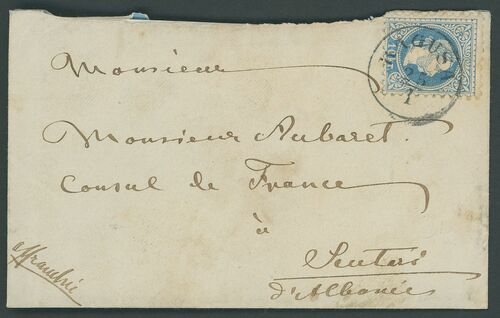 Monsieur
Monsieur Aubaret
Consul de France
à
Scutari
d'Albanie
affranchie